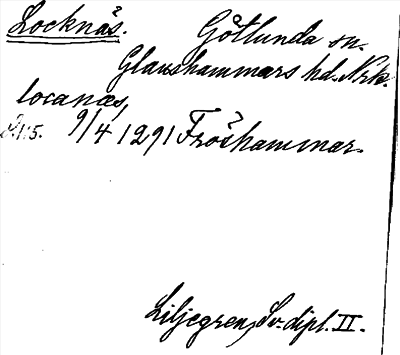 Locknäs. Götlunda sn.
Glanshammars hd. Nrk.
locanæs,
9/4 1291 Fröshammar.
Liljegren, Sv. dipl. II.